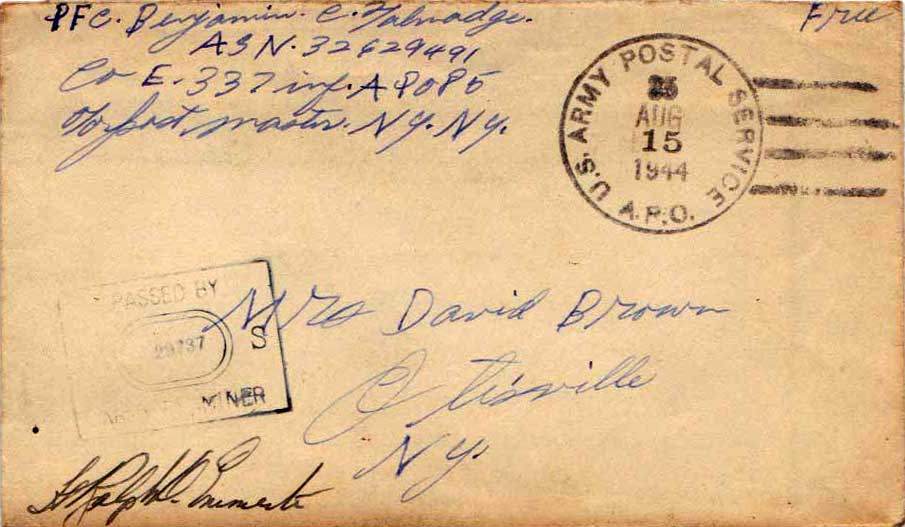 PFC. Benjamin. C. Talmadge.
Free
ASN. 32629491
Co E. 337 inf. APO 85
c/o post master. N.Y. N.Y.
U.S. ARMY POSTAL SERVICE
AUG
15
1944
A.P.O.
PASSED BY
29737
S
MINER
Mrs David Brown
Otisville
N.Y.
Lt Ralph